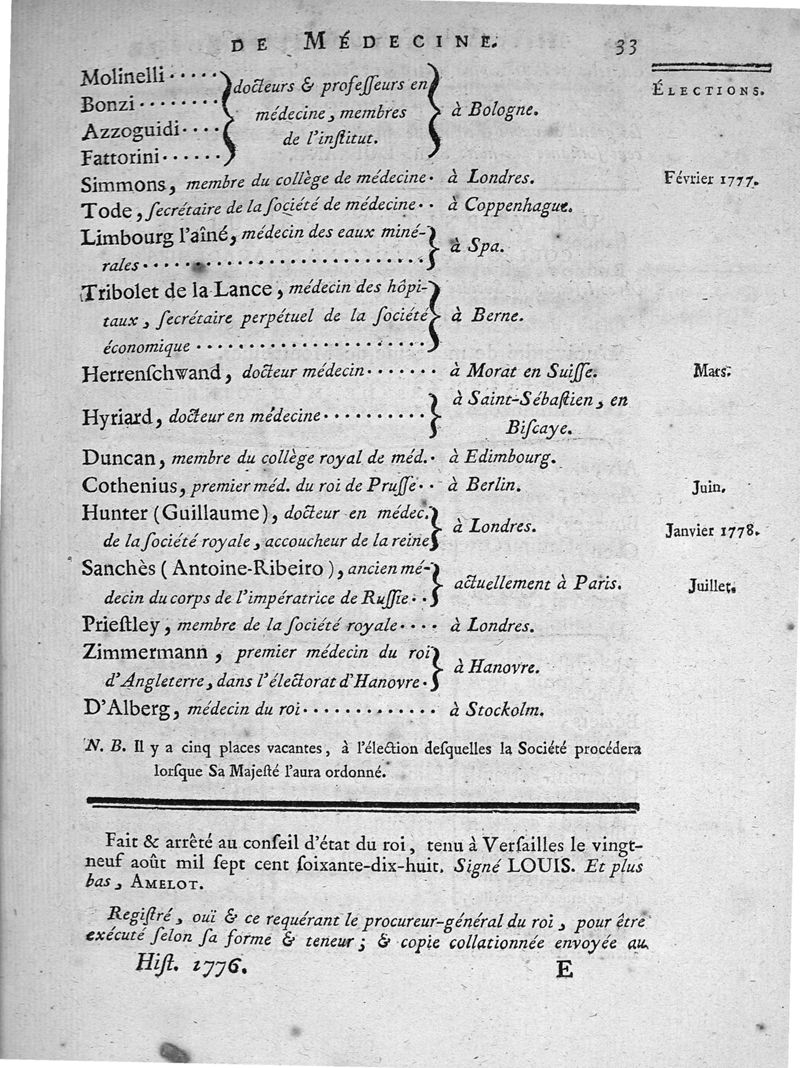 DE MÉDECINE. 33
ÉLECTIONS.
Molinelli · · · · ·
Bonzi · · · · · · · ·
Azzoguidi · · · ·
Fattorini · · · · · ·
docteurs & profeſſeurs en
médecine, membres
de l'inſtitut.
à Bologne.
Simmons, membre du collège de médecine · à Londres. Février 1777.
Tode, ſecrétaire de la ſociété de médecine · · à Coppenhague.
Limbourg l'aîné, médecin des eaux miné-
rales · · · · · · · · · · · · · · · · · · · · · · · ·
à Spa.
Tribolet de la Lance, médecin des hôpi-
taux, ſecrétaire perpétuel de la ſociété
économique · · · · · · · · · · · · · · · · · · ·
à Berne.
Herrenſchwand, docteur médecin · · · · · · · à Morat en Suiſſe. Mars.
Hyriard, docteur en médecine · · · · · · · · · ·
à Saint-Sébaſtien, en
Biſcaye.
Duncan, membre du collège royal de méd. · à Edimbourg.
Cothenius, premier méd. du roi de Pruſſe · · à Berlin. Juin.
Hunter (Guillaume), docteur en médec.
de la ſociété royale, accoucheur de la reine
à Londres. Janvier 1778.
Sanchès (Antoine-Ribeiro), ancien mé-
decin du corps de l'impératrice de Ruſſie · ·
actuellement à Paris. Juillet.
Prieſtley, membre de la ſociété royale · · · · à Londres.
Zimmermann, premier médecin du roi
d'Angleterre, dans l'électorat d'Hanovre ·
à Hanovre.
D'Alberg, médecin du roi · · · · · · · · · · · · · à Stockolm.
N. B. Il y a cinq places vacantes, à l'élection deſquelles la Société procédera
lorſque Sa Majeſté l'aura ordonné.
Fait & arrêté au conſeil d'état du roi, tenu à Verſailles le vingt-
neuf août mil ſept cent ſoixante-dix-huit. Signé LOUIS. Et plus
bas, AMELOT.
Regiſtré, ouï & ce requérant le procureur-général du roi, pour être
exécuté ſelon ſa forme & teneur; & copie collationnée envoyée au
Hiſt. 1776. E